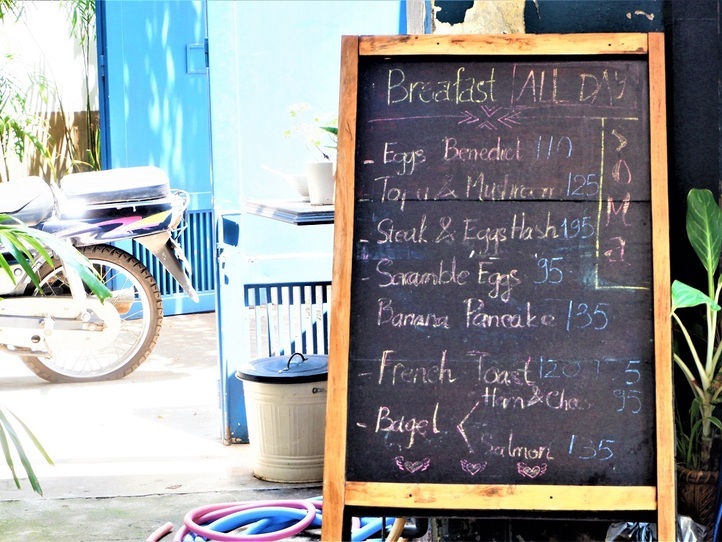 Breafast ALL DAY
- Eggs Benedict 110
- & Mushroom 125
- Steak & Eggs Hash 195
- Scramble Eggs 95
Banana Pancake 135
- French Toast
Ham & 95
- Bagel
Salmon 135